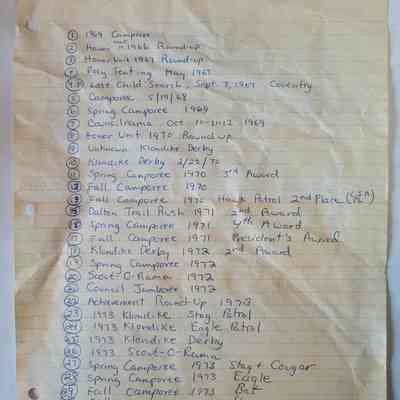 ① 1969 Camporee
② Honor Unit 1966 Round-up
③ Honor Unit 1967 Round-up
④ Polg Testing May 1967
Lost Child Search, Sept. 7, 1967 Coventry
⑤ Camporee 5/19/68
⑥ Spring Camporee 1969
⑦ Council-rama Oct 10-11-12 1969
⑧ Honor Unit 1970 Round up
⑨ Unknown Klondike Derby
⑩ Klondike Derby 2/22/70
Spring Camporee 1970 3rd Award
Fall Camporee 1970
Fall Camporee 1970 Hawk Patrol 2nd Place
Dalton Trail Rush 1971 2nd Award
Spring Camporee 1971 4th Award
Fall Camporee 1971 President's Award
Klondike Derby 1972 2nd Award
Spring Camporee 1972
Scout-O-Rama 1972
Council Jamboree 1972
㉒ Achievement Round-Up 1973
㉓ 1973 Klondike Stag Patrol
㉔ 1973 Klondike Eagle Patrol
㉕ 1973 Klondike Derby
㉖ 1973 Scout-O-Rama
㉗ Spring Camporee 1973 Stag + Cougar
㉘ Spring Camporee 1973 Eagle
㉙ Fall Camporee 1973 Bat